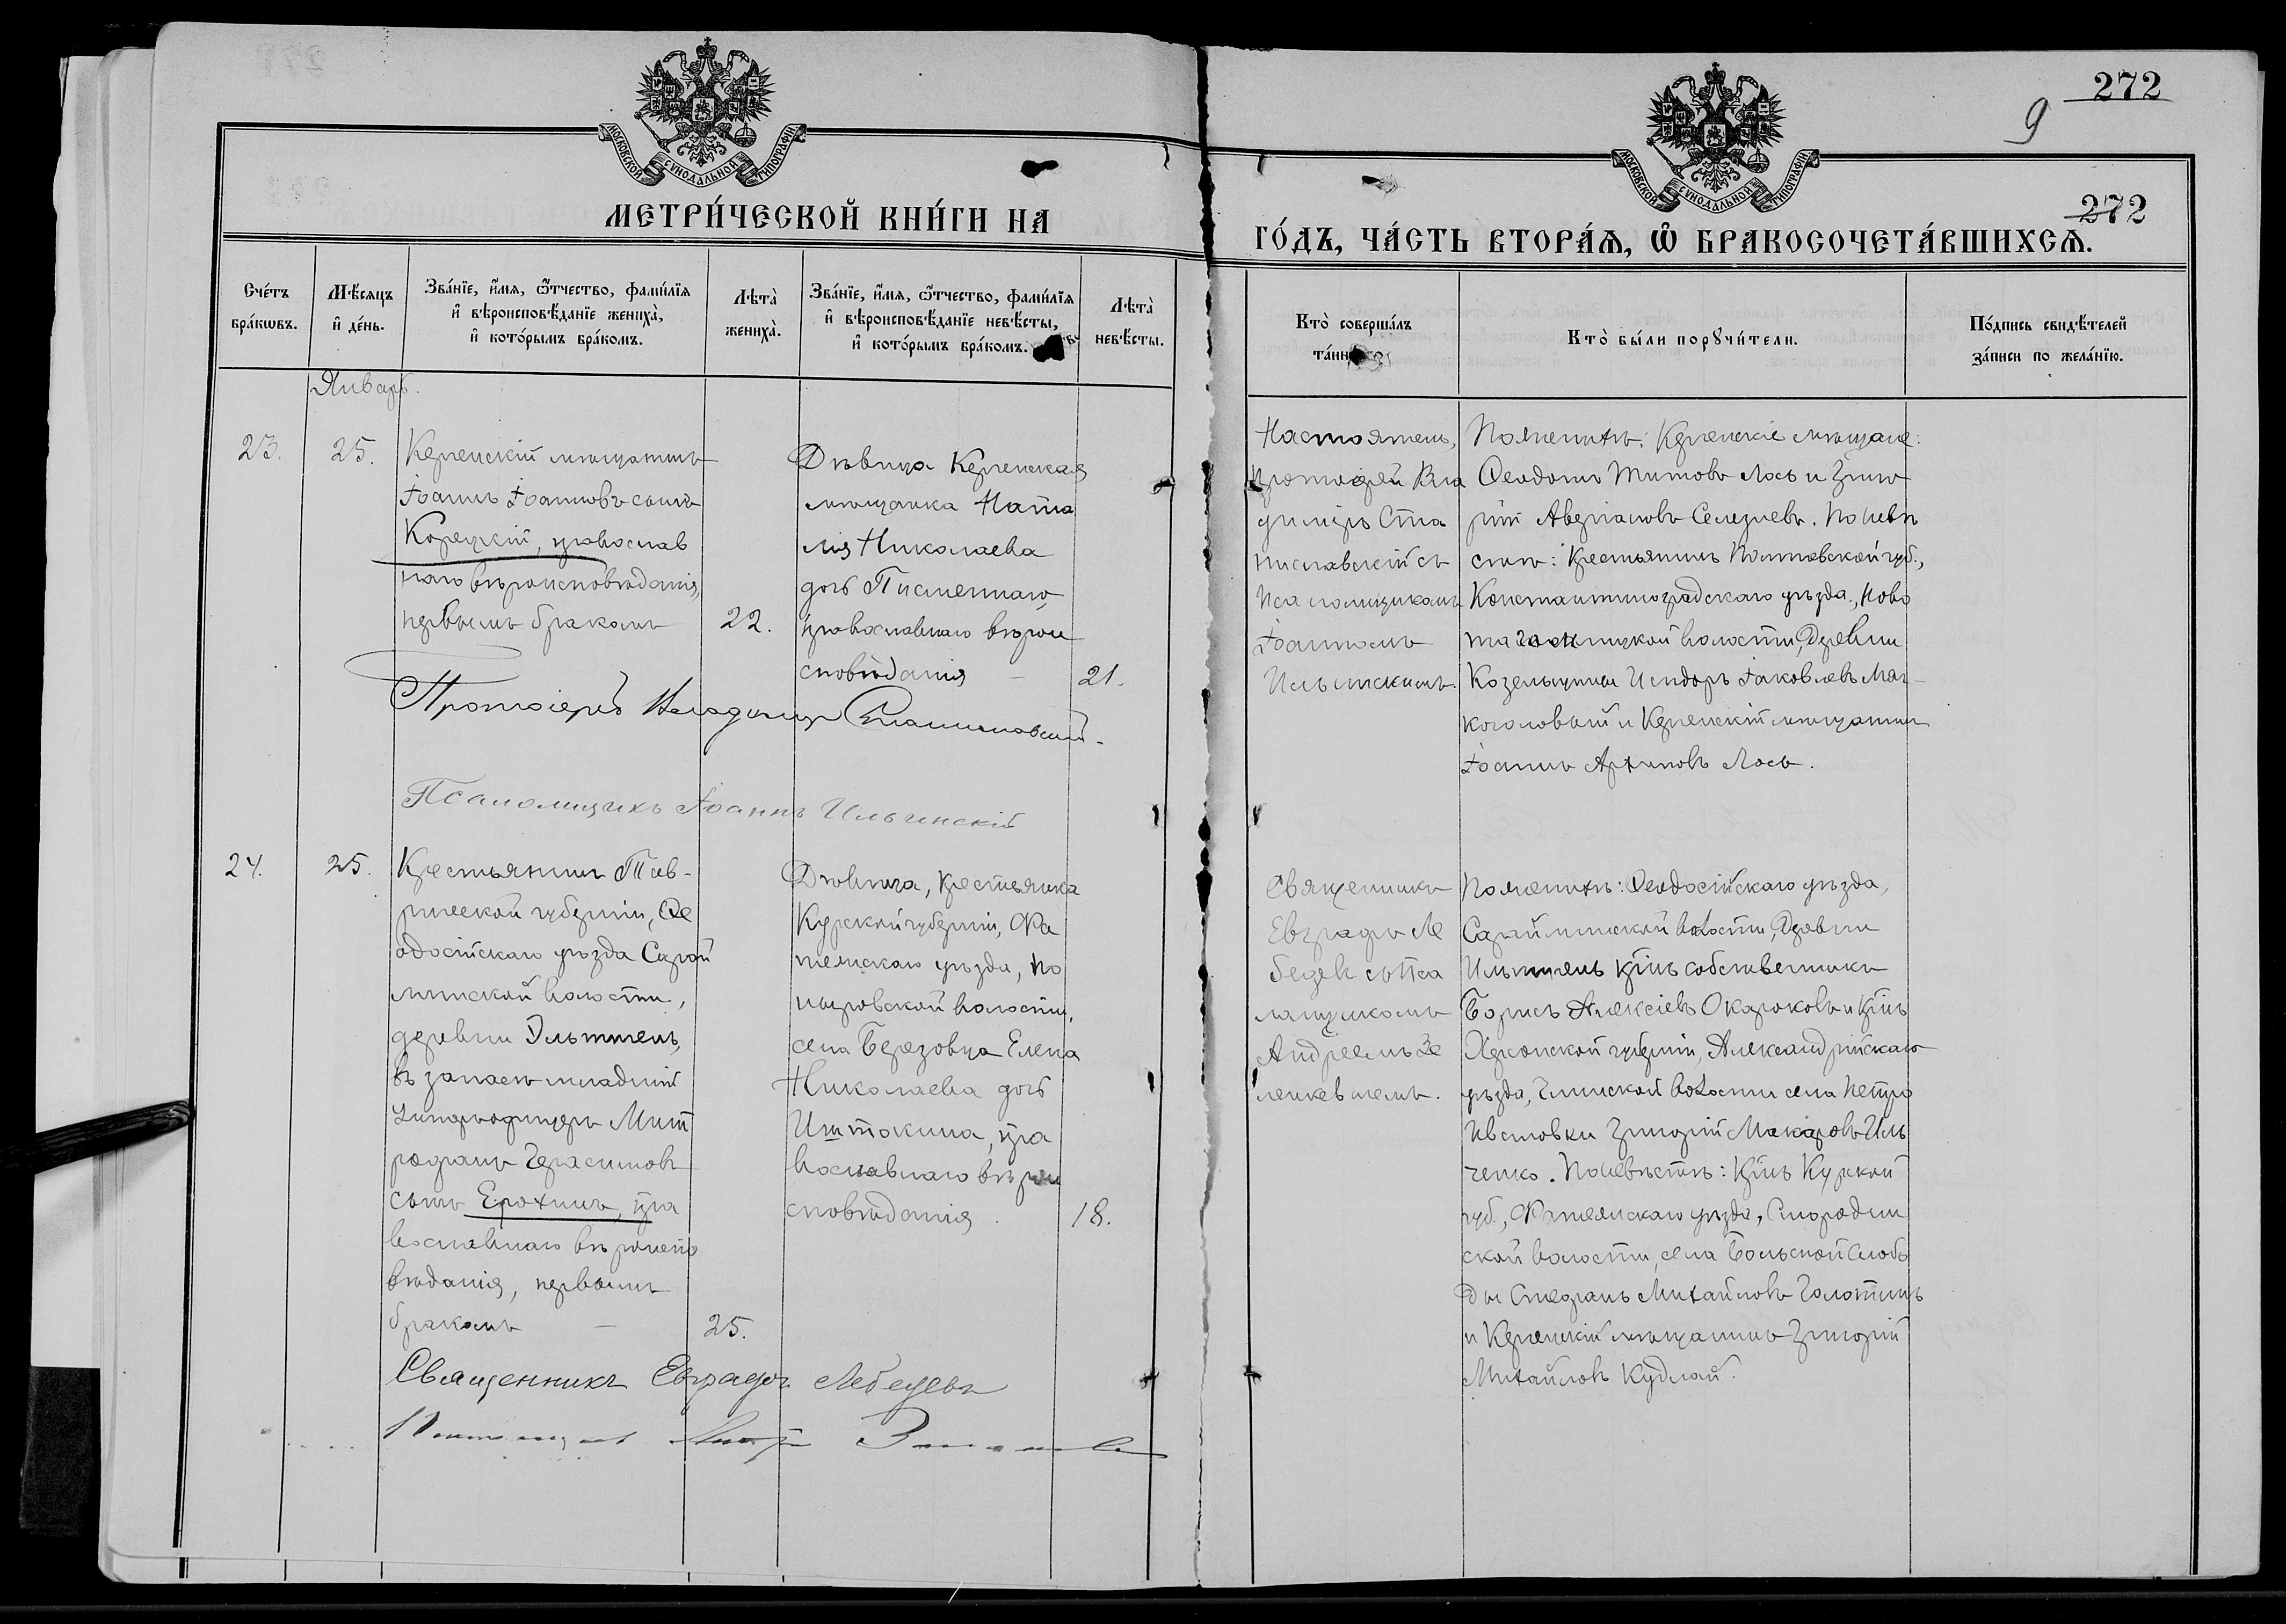 272
9
272
МОСКОВСКОЙ СУНОДАЛЬНОЙ ТИПОГРАФІИ
МОСКОВСКОЙ СУНОДАЛЬНОЙ ТИПОГРАФІИ
МЕТРИ́ЧЕСКОЙ КНИ́ГИ НА
ГО́ДЪ, ЧА́СТЬ ВТОРА́Ѧ, Ѡ҆ БРАКОСОЧЕТА́ВШИХСѦ.
Сче́тъ бра́кѡвъ.
Мѣ́сяцъ и҆ де́нь.
Зва́нїе, и҆́мя, ѻ҆́тчество, фами́лїя
и҆ вѣроисповѣ́данїе жениха̀,
и҆ кото́рымъ бра́комъ.
Лѣта̀ жениха̀.
Зва́нїе, и҆́мя, ѻ҆́тчество, фами́лїя
и҆ вѣроисповѣ́данїе невѣ́сты,
и҆ кото́рымъ бра́комъ.
Лѣта̀ невѣ́сты.
Кто̀ соверша́лъ
Кто̀ бы́ли порꙋчи́тели.
По́дпись свидѣ́телей
за́писи по жела́нїю.
Январь.
23.
25.
Керченскій мѣщанинъ
Іоаннъ Іоанновъ сынъ
Корецкій, православ
наго вѣроисповѣданія,
первымъ бракомъ
22.
Дѣвица Керченская
мѣщанка Ната
лія Николаева
дочь Писменнаго,
православнаго вѣрои
сповѣданія
21.
Настоятель,
Протоіерей Вла
диміръ Ста
ниславскій съ
Псаломщикомъ
Іоанномъ
Ильинскимъ.
По женихѣ: Керченскіе мѣщане:
Ѳеодотъ Титовъ Лось и Григо
рій Аверіановъ Селезневъ. По невѣ
стѣ: Крестьянинъ Полтавской губ.,
Константиноградскаго уѣзда, Ново
волости, Деревни
Козельщины Исидоръ Іаковлевъ Мяг-
коголовый и Керченскій мѣщанинъ
Іоаннъ Архиповъ Лось.
Протоіерей Владиміръ Станиславскій.
Псаломщикъ Іоаннъ Ильинскій
24.
25.
Крестьянинъ Тав-
рической губерніи, Ѳе
одосійскаго уѣзда Сарай
минской волости,
деревни Эльтигенъ,
въ запасѣ младшій
Унтеръ-офицеръ Мит
рофанъ Герасимовъ
сынъ Ерохинъ, пра
вославнаго вѣроиспо
вѣданія, первымъ
бракомъ
25.
Дѣвица, крестьянка
Курской губерніи, Фа
тежскаго уѣзда, По
ныровской волости,
села Березовца Елена
Николаева дочь
Иштокина, пра
вославнаго вѣрои
сповѣданія.
18.
Священникъ
Евграфъ Ле
бедевъ съ Пса
ломщикомъ
Андреемъ Зе
ленкевичемъ.
По женихѣ: Ѳеодосійскаго уѣзда,
Сарайминской волости, Деревни
Ильтигенъ кр-нъ собственникъ
Борисъ Алексіевъ Окороковъ и кр-нъ
Херсонской губерніи, Александрійскаго
уѣзда, Глинской волости села Петро
Ивановки Григорій Макаровъ Иль
ченко. По невѣстѣ: кр-нъ Курской
губ., Фатежскаго уѣзда, Смородин
ской волости, села Большой Слобо
ды Стефанъ Михайловъ Голотинъ
и Керченскій мѣщанинъ Григорій
Михайловъ Кудлай.
Священникъ Евграфъ Лебедевъ